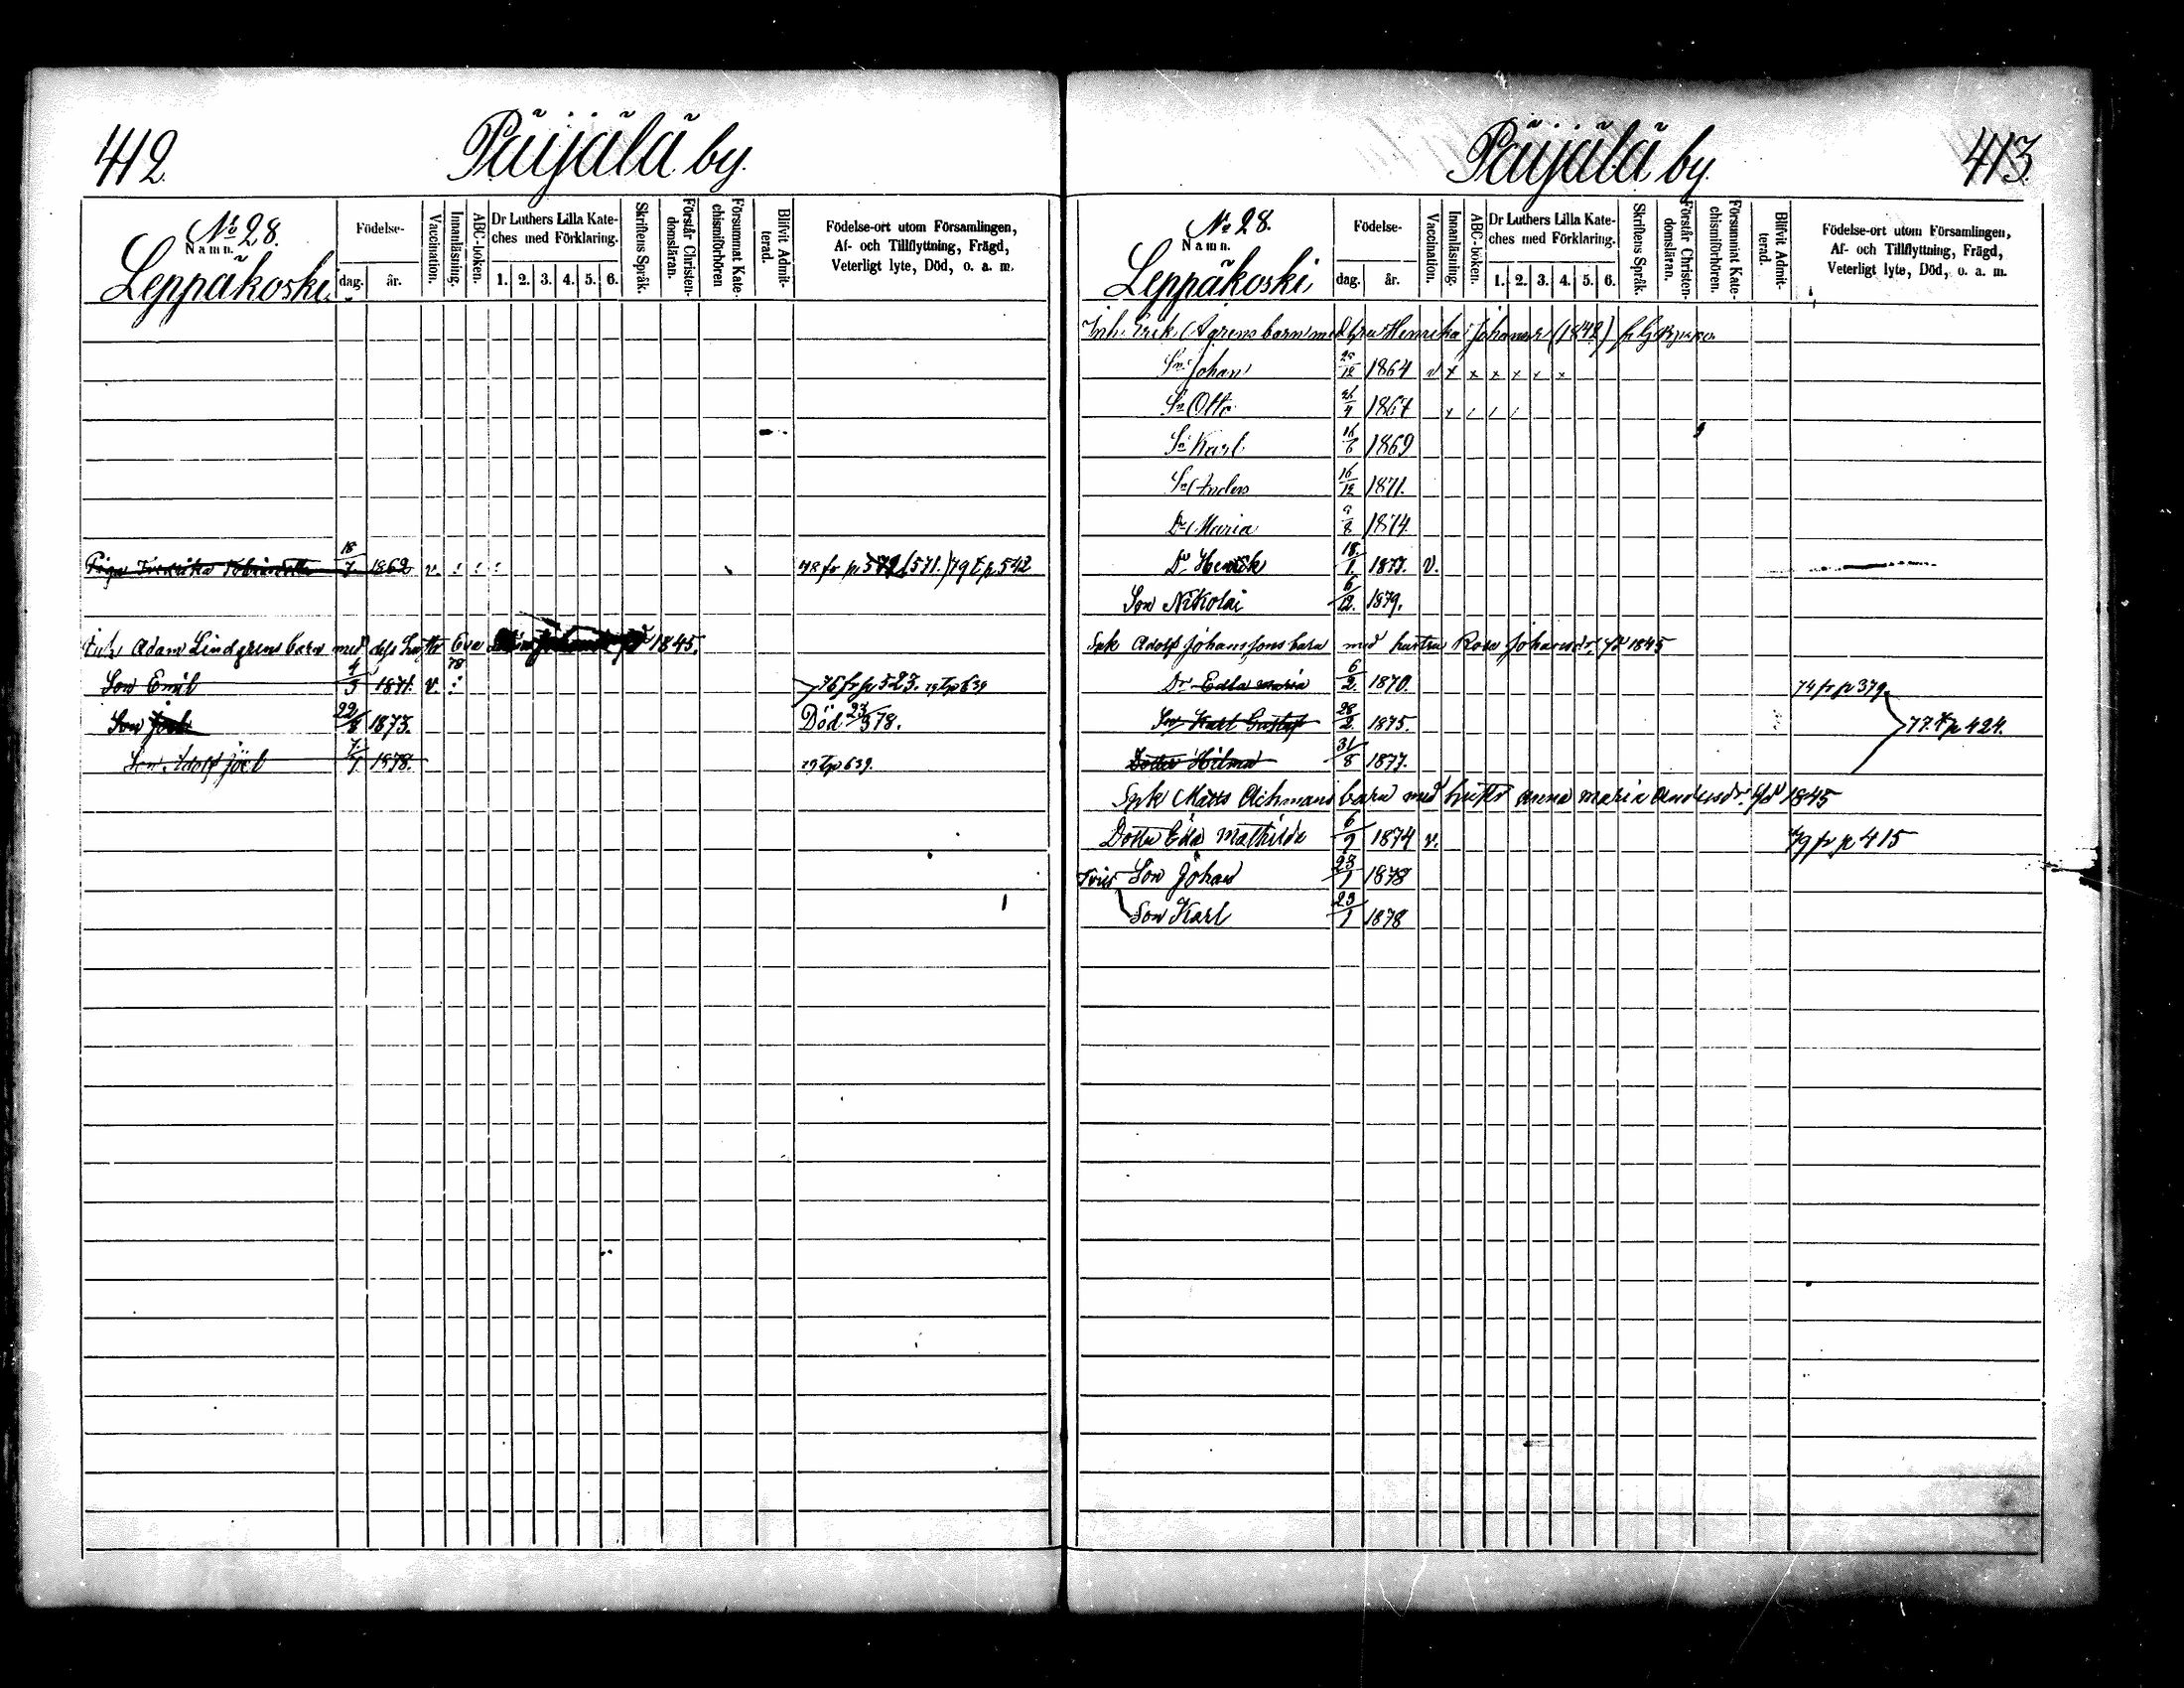 412.
Päijälä by.
No 28.
Namn.
Leppäkoski
Födelse-
dag.
år.
Vaccination.
Innanläsning.
ABC-boken.
Dr Luthers Lilla Kate-
ches med Förklaring.
1. 2. 3. 4. 5. 6.
Skriftens Språk.
Förstår Christen-
domsläran.
Försummat Kate-
chismiförhören
Blifvit Admit-
terad.
Födelse-ort utom Församlingen,
Af- och Tillflyttning, Frägd,
Veterligt lyte, Död, o. a. m.
Piga Fredrika 18/7 1862 v. 78 fr p 572 (571.) 79 t. p. 542
Inh Adam Lindgrens barn med dess hustr Eva 1845.
Son Emil 4/3 1871. v. 78 76 fr p 523. 79 t p 639
Son Joel 22/8 1873. Död 23/3 78.
Son Adolf Joel 7/1. 1878. 79 t p 639.
Päijälä by.
413.
No 28.
Namn.
Leppäkoski
Födelse-
dag.
år.
Vaccination.
Innanläsning.
ABC-boken.
Dr Luthers Lilla Kate-
ches med Förklaring.
1. 2. 3. 4. 5. 6.
Skriftens Språk.
Förstår Christen-
domsläran.
Försummat Kate-
chismiförhören.
Blifvit Admit-
terad.
Födelse-ort utom Församlingen,
Af- och Tillflyttning, Frägd,
Veterligt lyte, Död, o. a. m.
Inh. Erik Ågrens barn med hru Henrika Johansdr (1842)
Sn Johan 1864 v x x x x x x
Sn Otto 26/4 1867 x
Sn Karl 16/6 1869
Sn Anders 16/12 1871.
Dr Maria 9/8 1874.
Dr Henrik 18/1. 1877. v.
Son Nikolai 6/12. 1879.
Spk Adolf Johanssons barn med hustru Rosa Johansdr, fd 1845
Dr Edla Maria 6/2. 1870. 74 fr p 379.
Sn Karl Gustaf 28/2. 1875. 77. t p 424.
Dotter Hilma 31/8 1877.
Spk Matts Achmans barn med hustr Anna Maria Andersdr. fd 1845
Dotter Eda Mathilda 6/9 1874 v. 79 fr p 415
Son Johan 23/1 1878
Son Karl 23/1 1878